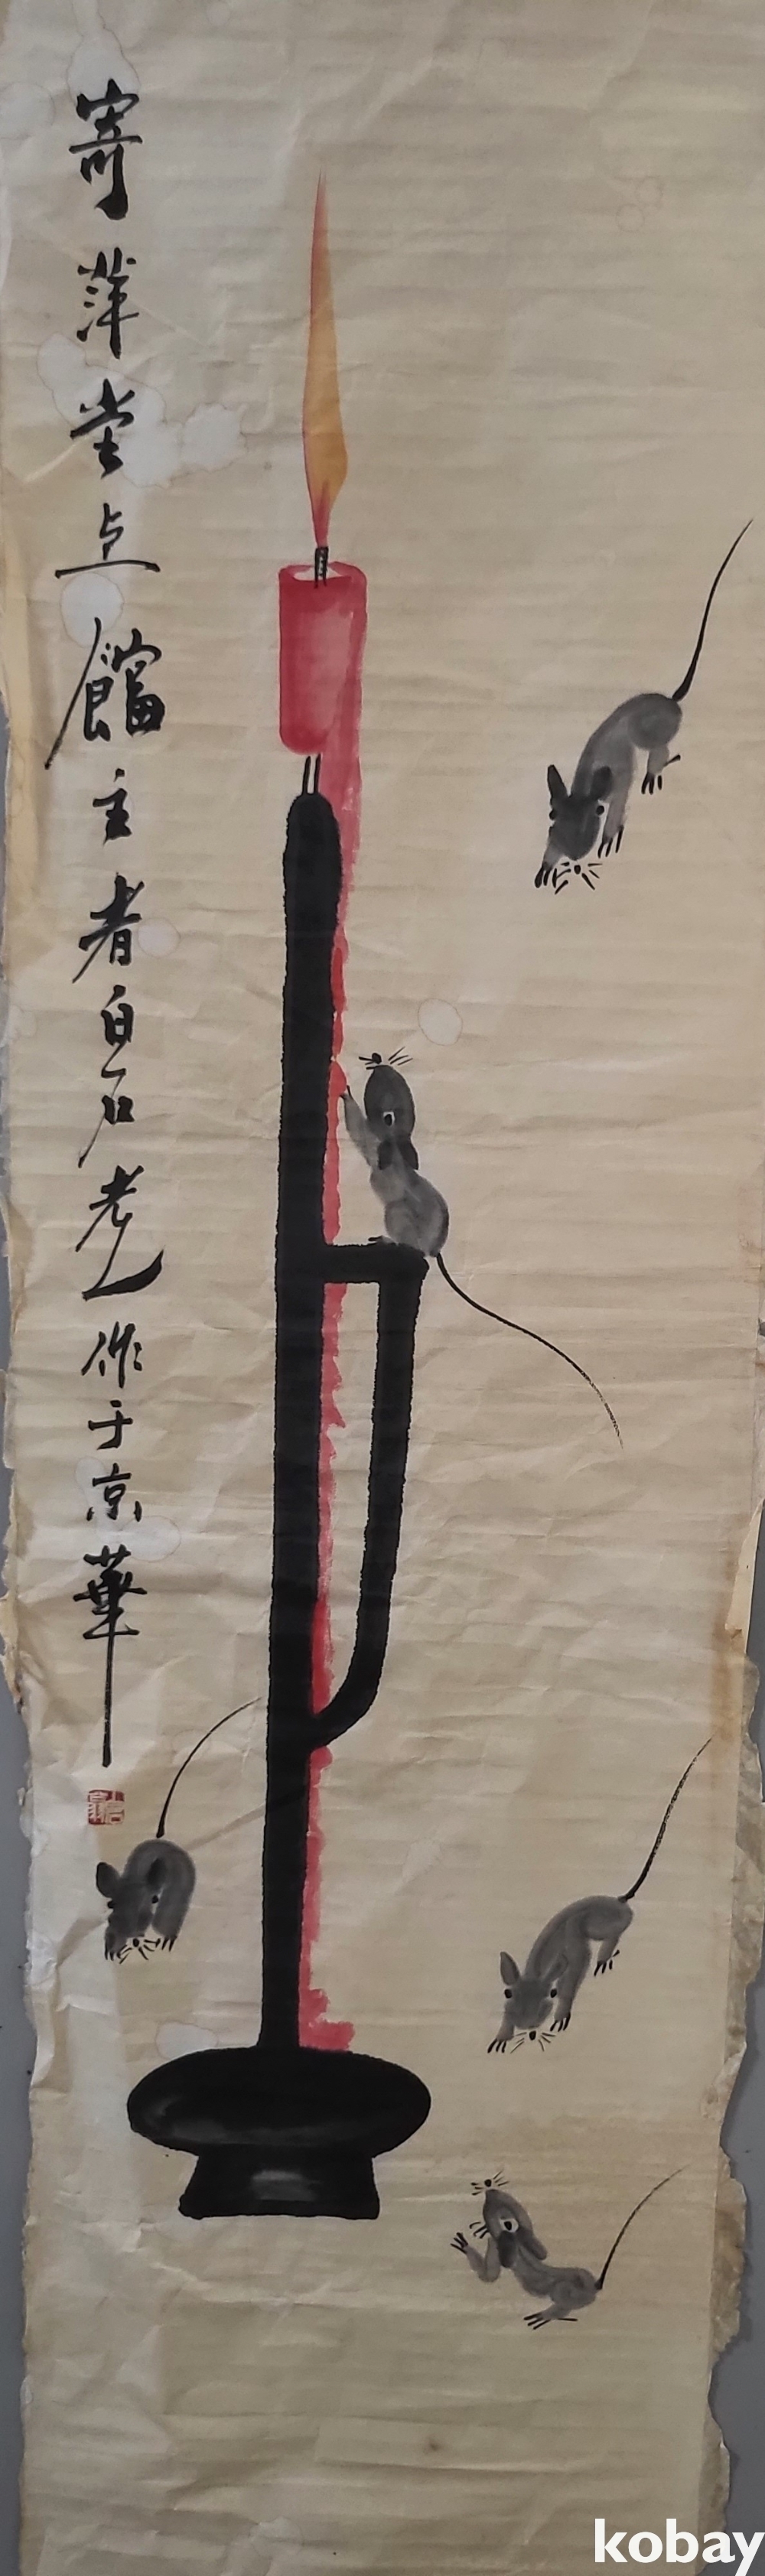 寄萍堂上館主者白石老作于京華
kobay